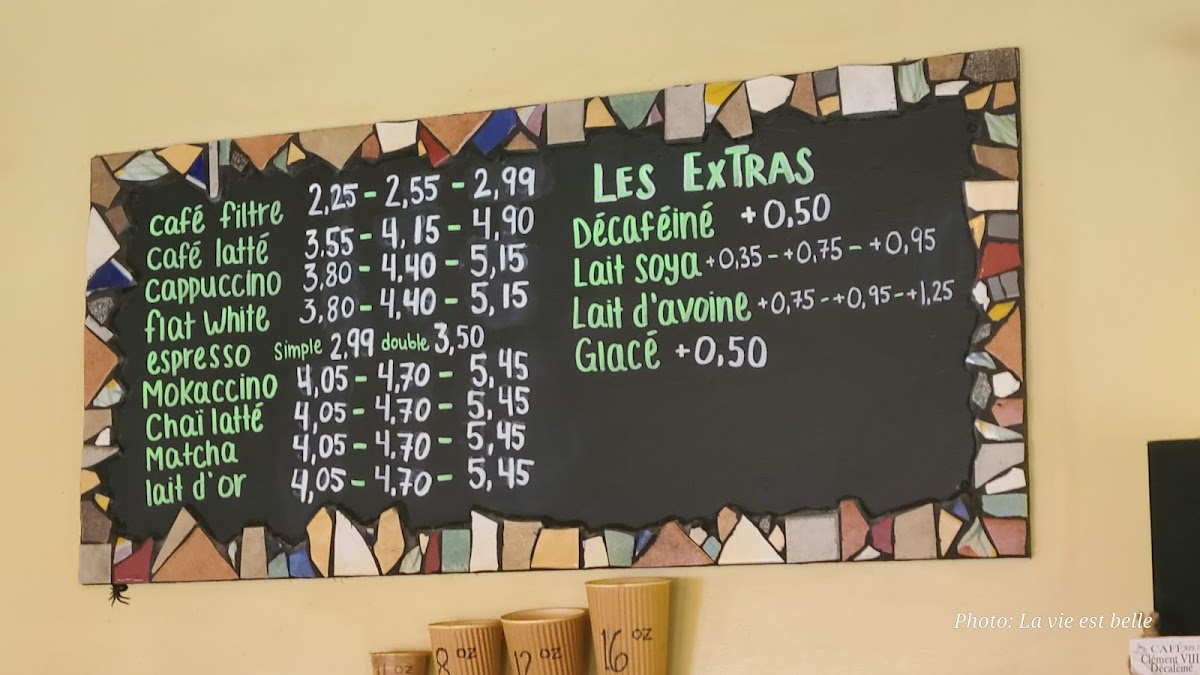 café filtre 2,25 - 2,55 - 2,99
café latté 3,55 - 4,15 - 4,90
cappuccino 3,80 - 4,40 - 5,15
flat white 3,80 - 4,40 - 5,15
espresso simple 2,99 double 3,50
Mokaccino 4,05 - 4,70 - 5,45
Chaï latté 4,05 - 4,70 - 5,45
Matcha 4,05 - 4.70 - 5,45
lait d'or 4,05 - 4,70 - 5,45
LES EXTRAS
Décaféiné +0,50
Lait soya +0,35 - +0,75 - +0,95
Lait d'avoine +0,75 - +0,95 - +1,25
Glacé +0,50
8 oz
12 oz
16 oz
Photo: La vie est belle
CAFÉ
Clément VIII
Décaféiné